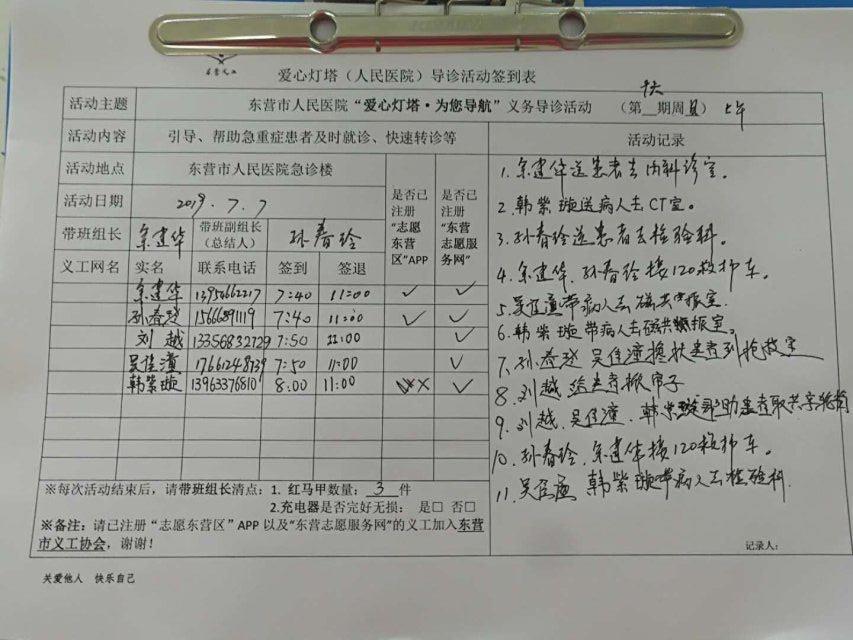 东营义工
爱心灯塔（人民医院）导诊活动签到表
活动主题 东营市人民医院“爱心灯塔·为您导航”义务导诊活动 （第__期周日） 上午
活动内容 引导、帮助急重症患者及时就诊、快速转诊等 活动记录
活动地点 东营市人民医院急诊楼 是否已注册“志愿东营区”APP 是否已注册“东营志愿服务网”
活动日期 2019.7.7
带班组长 余建华 带班副组长（总结人） 孙春玲
义工网名 实名 联系电话 签到 签退
余建华 7:40 11:00 ✓ ✓
15666891119 7:40 11:00 ✓ ✓
刘越 13356832729 7:50 11:00 ✓
吴佳潼 7:50 11:00 ✓
韩紫璇 13963376810 8:00 11:00 ✓
1. 余建华送患者去内科诊室。
2. 韩紫璇送病人去CT室。
3. 孙春玲送患者去检验科。
4. 余建华、孙春玲接120救护车。
5. 吴佳潼带病人去磁共振室.
6. 韩紫璇带病人去磁共振室。
7. 吴佳潼 患者到抢救室
8. 刘越给患者掀帘子
9. 刘越、吴佳潼、韩紫璇帮助患者取共享轮椅
10. 孙春玲、余建华接120救护车。
11. 吴佳潼 韩紫璇带病人去检验科
※每次活动结束后，请带班组长清点：1. 红马甲数量：3件
2.充电器是否完好无损： 是□ 否□
※备注：请已注册“志愿东营区”APP 以及“东营志愿服务网”的义工加入东营
市义工协会，谢谢！
记录人：
关爱他人 快乐自己